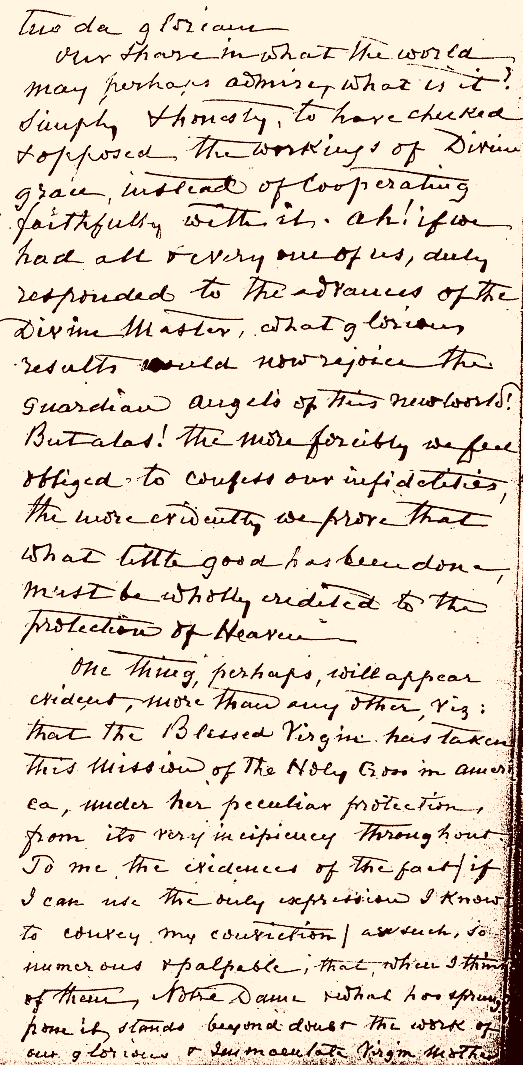 tuo da gloriam
Our share in what the world
may perhaps admire, what is it?
Simply & honestly, to have checked
& opposed the workings of Divine
grace, instead of Cooperating
faithfully with it. Ah! if we
had all & every one of us, duly
responded to the advances of the
Divine Master, what glorious
results would now rejoice the
Guardian Angels of this new world!
But alas! the more forcibly we feel
obliged to confess our infidelities,
the more evidently we prove that
what little good has been done,
must be wholly credited to the
protection of Heaven
One thing, perhaps, will appear
evident, more than any other, viz:
that the Blessed Virgin has taken
this Mission of the Holy Cross in Ameri
ca, under her peculiar protection,
from its very incipiency throughout
To me the evidences of the fact (if
I can use the only expression I know
to convey my conviction) are such, so
numerous & palpable, that, when I think
of them, Notre Dame & what has sprung
from it, stands beyond doubt the work of
our glorious & Immaculate Virgin Mother